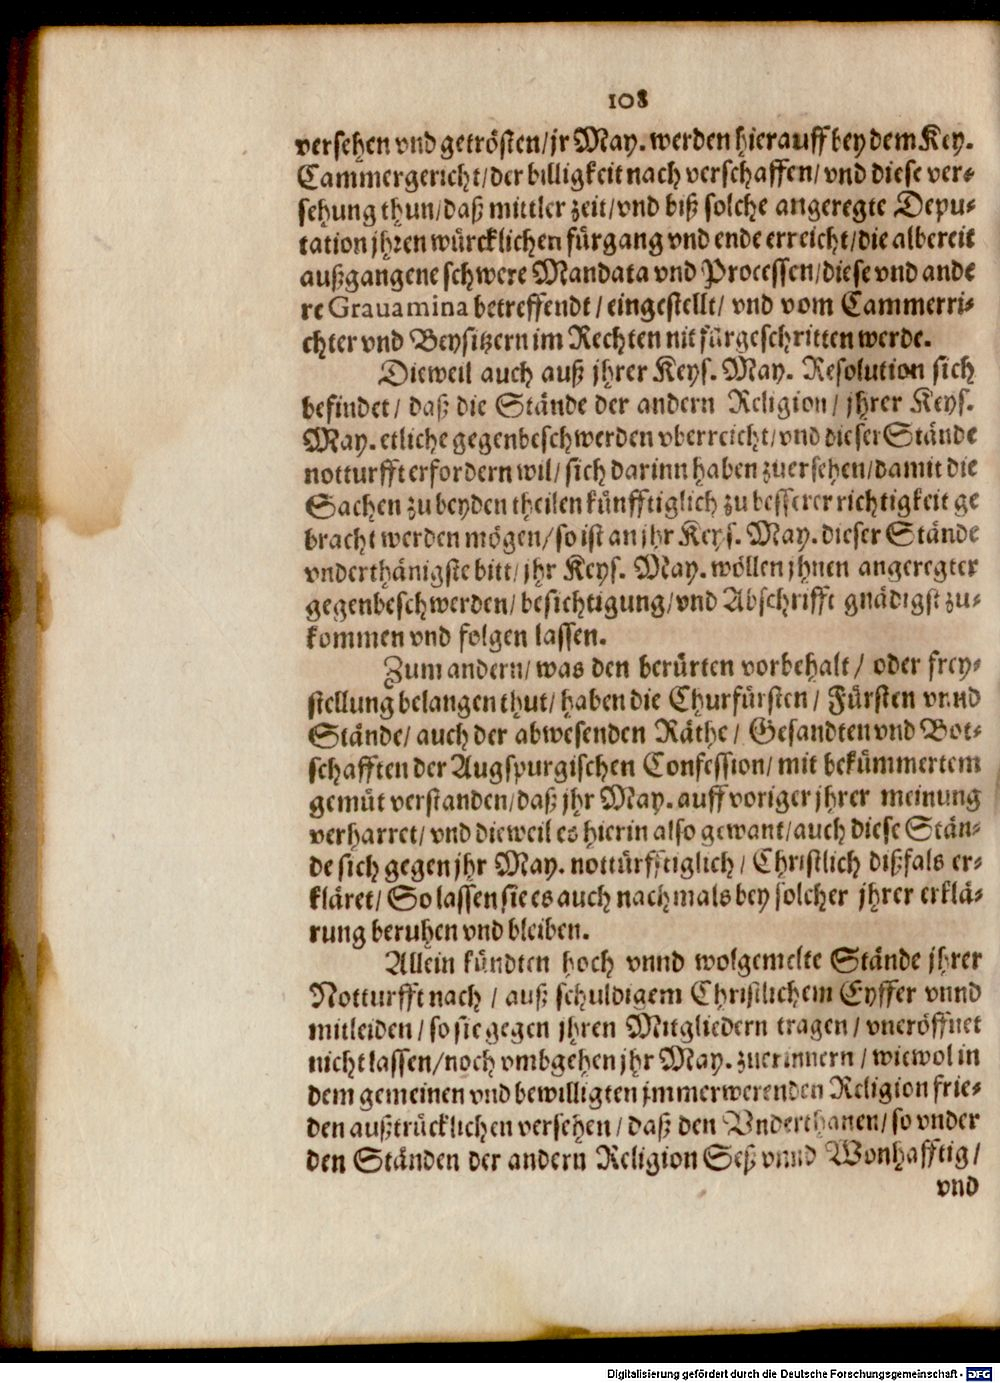 108
versehen vnd getrösten/jr May. werden hierauff bey dem Key.
Cammergericht/der billigkeit nach verschaffen/vnd diese ver-
sehung thun/daß mittler zeit/vnd biß solche angeregte Depu-
tation jhren würcklichen fürgang vnd ende erreicht/die albereit
außgangene schwere Mandata vnd Processen/diese vnd ande
re Grauamina betreffendt/eingestellt/ vnd vom Cammerri-
chter vnd Beysitzern im Rechten nit fürgeschritten werde.
Dieweil auch auß jhrer Keys. May. Resolution sich
befindet/ daß die Stände der andern Religion/ jhrer Keys.
May. etliche gegenbeschwerden vberreicht/vnd dieser Stände
notturfft erfordern wil/sich darinn haben zuersehen/damit die
Sachen zu beyden theilen künfftiglich zu besserer richtigkeit ge
bracht werden mögen/so ist an jhr Keys. May. dieser Stände
vnderthänigste bitt/jhr Keys. May. wöllen jhnen angeregter
gegenbeschwerden/besichtigung/vnd Abschrifft gnädigst zu-
kommen vnd folgen lassen.
Zum andern/was den berürten vorbehalt/ oder frey-
stellung belangen thut/haben die Churfürsten/ Fürsten vnnd
Stände/auch der abwesenden Räthe/ Gesandten vnd Bot-
schafften der Augspurgischen Confession/mit bekümmertem
gemüt verstanden/daß jhr May. auff voriger jhrer meinung
verharret/vnd dieweil es hierin also gewant/auch diese Stän-
de sich gegen jhr May. nottürfftiglich/ Christlich dißfals er-
kläret/ So lassen sie es auch nachmals bey solcher jhrer erklä-
rung beruhen vnd bleiben.
Allein kündten hoch vnnd wolgemelte Stände jhrer
Notturfft nach / auß schuldigem Christlichem Eyffer vnnd
mitleiden/so sie gegen jhren Mitgliedern tragen/vneröffnet
nicht lassen/noch vmbgehen jhr May. zuerinnern/wiewol in
dem gemeinen vnd bewilligten jmmerwerenden Religion frie-
den außtrücklichen versehen/daß den Vnderthanen/so vnder
den Ständen der andern Religion Seß vnnd Wonhafftig/
vnd
Digitalisierung gefördert durch die Deutsche Forschungsgemeinschaft - DFG